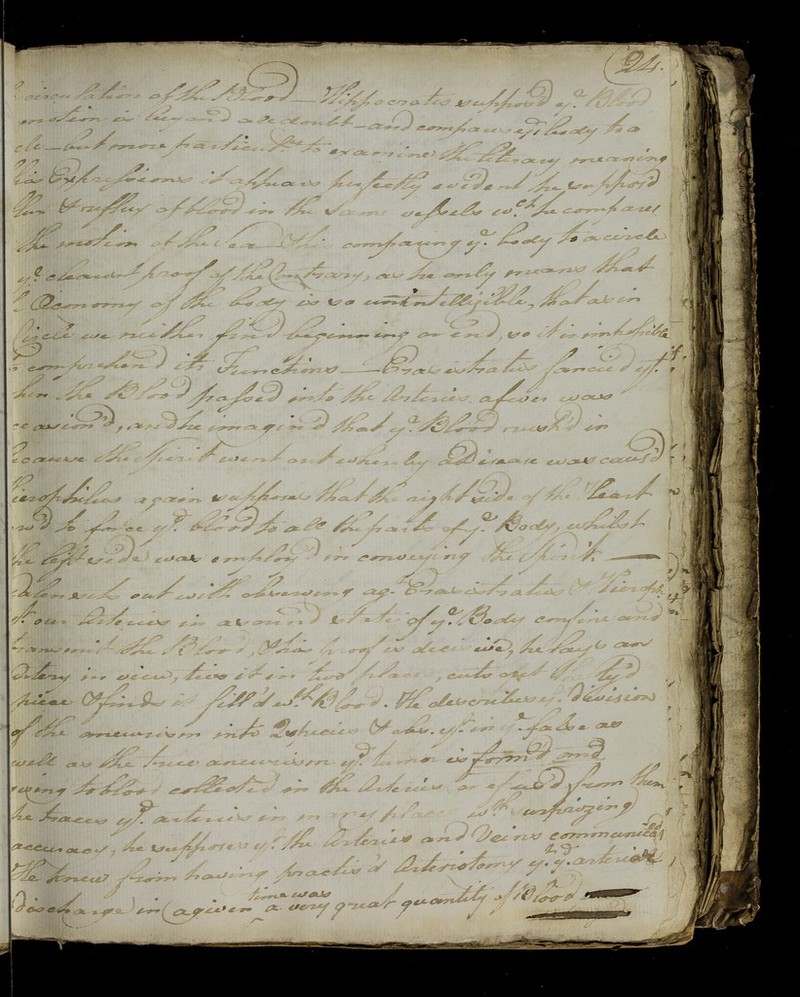 24.
circulation of the Blood — Hippocrates suppos'd ye. Blood
motion is beyond all doubt — and compares ye. body to a
cle — but more particular to examine the literary meaning
his Expressions it appears perfectly evident he suppos'd
flux & reflux of blood in the same vessels wch. he compares
the motion of the Sea — This comparing ye. body to a circle
ye. clearest proof of the Contrary, as he only means that
Œconomy of the body is so unintelligible, that as in
Circle we neither find beginning or end, so it is impossible
comprehend its Functions — Erasistratus fancied yt. if
when the Blood passed into the Arteries a fever was
occasion'd, and he imagin'd that ye. Blood rush'd in
because the Spirit went out whereby a Disease was caus'd
Hierophilus again supposes that the right side of the Heart
to force ye. blood to all the parts of ye. Body, whilst
the left side was employ'd in conveying the Spirit. —
Galen sets out with observing agt. Erasistratus & Hieroph:
yt. our Arteries in a sound state of ye. Body confine and
transmit the Blood, & his proof is decisive, he lays an
Artery in view, ties it in two places, cuts out the ty'd
piece & finds it fill'd wth. Blood. He describes ye. division
of the aneurism into 2 species & obs. yt. in ye. false as
well as the true aneurism ye. tumor is form'd and
owing to blood collected in the Arteries, or efus'd from them
he traces ye. arteries in many places wth. surprizing
accuracy, he supposes yt. the Arteries and Veins communicated
He knew from having practis'd Arteriotomy yt. ye. arterial
discharge in a given time was a very great quantity of Blood